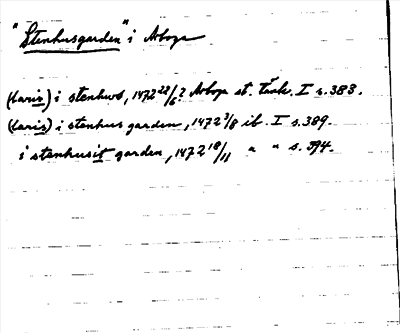 "Stenhusgarden" i Arboga
(Laris) i stenhws, 1472 22/6? Arboga st. Tänk. I s.383.
(Laris) i stenhus garden, 1472 3/8 ib. I s.389.
i stenhusit garden, 1472 18/11 " " s.394.